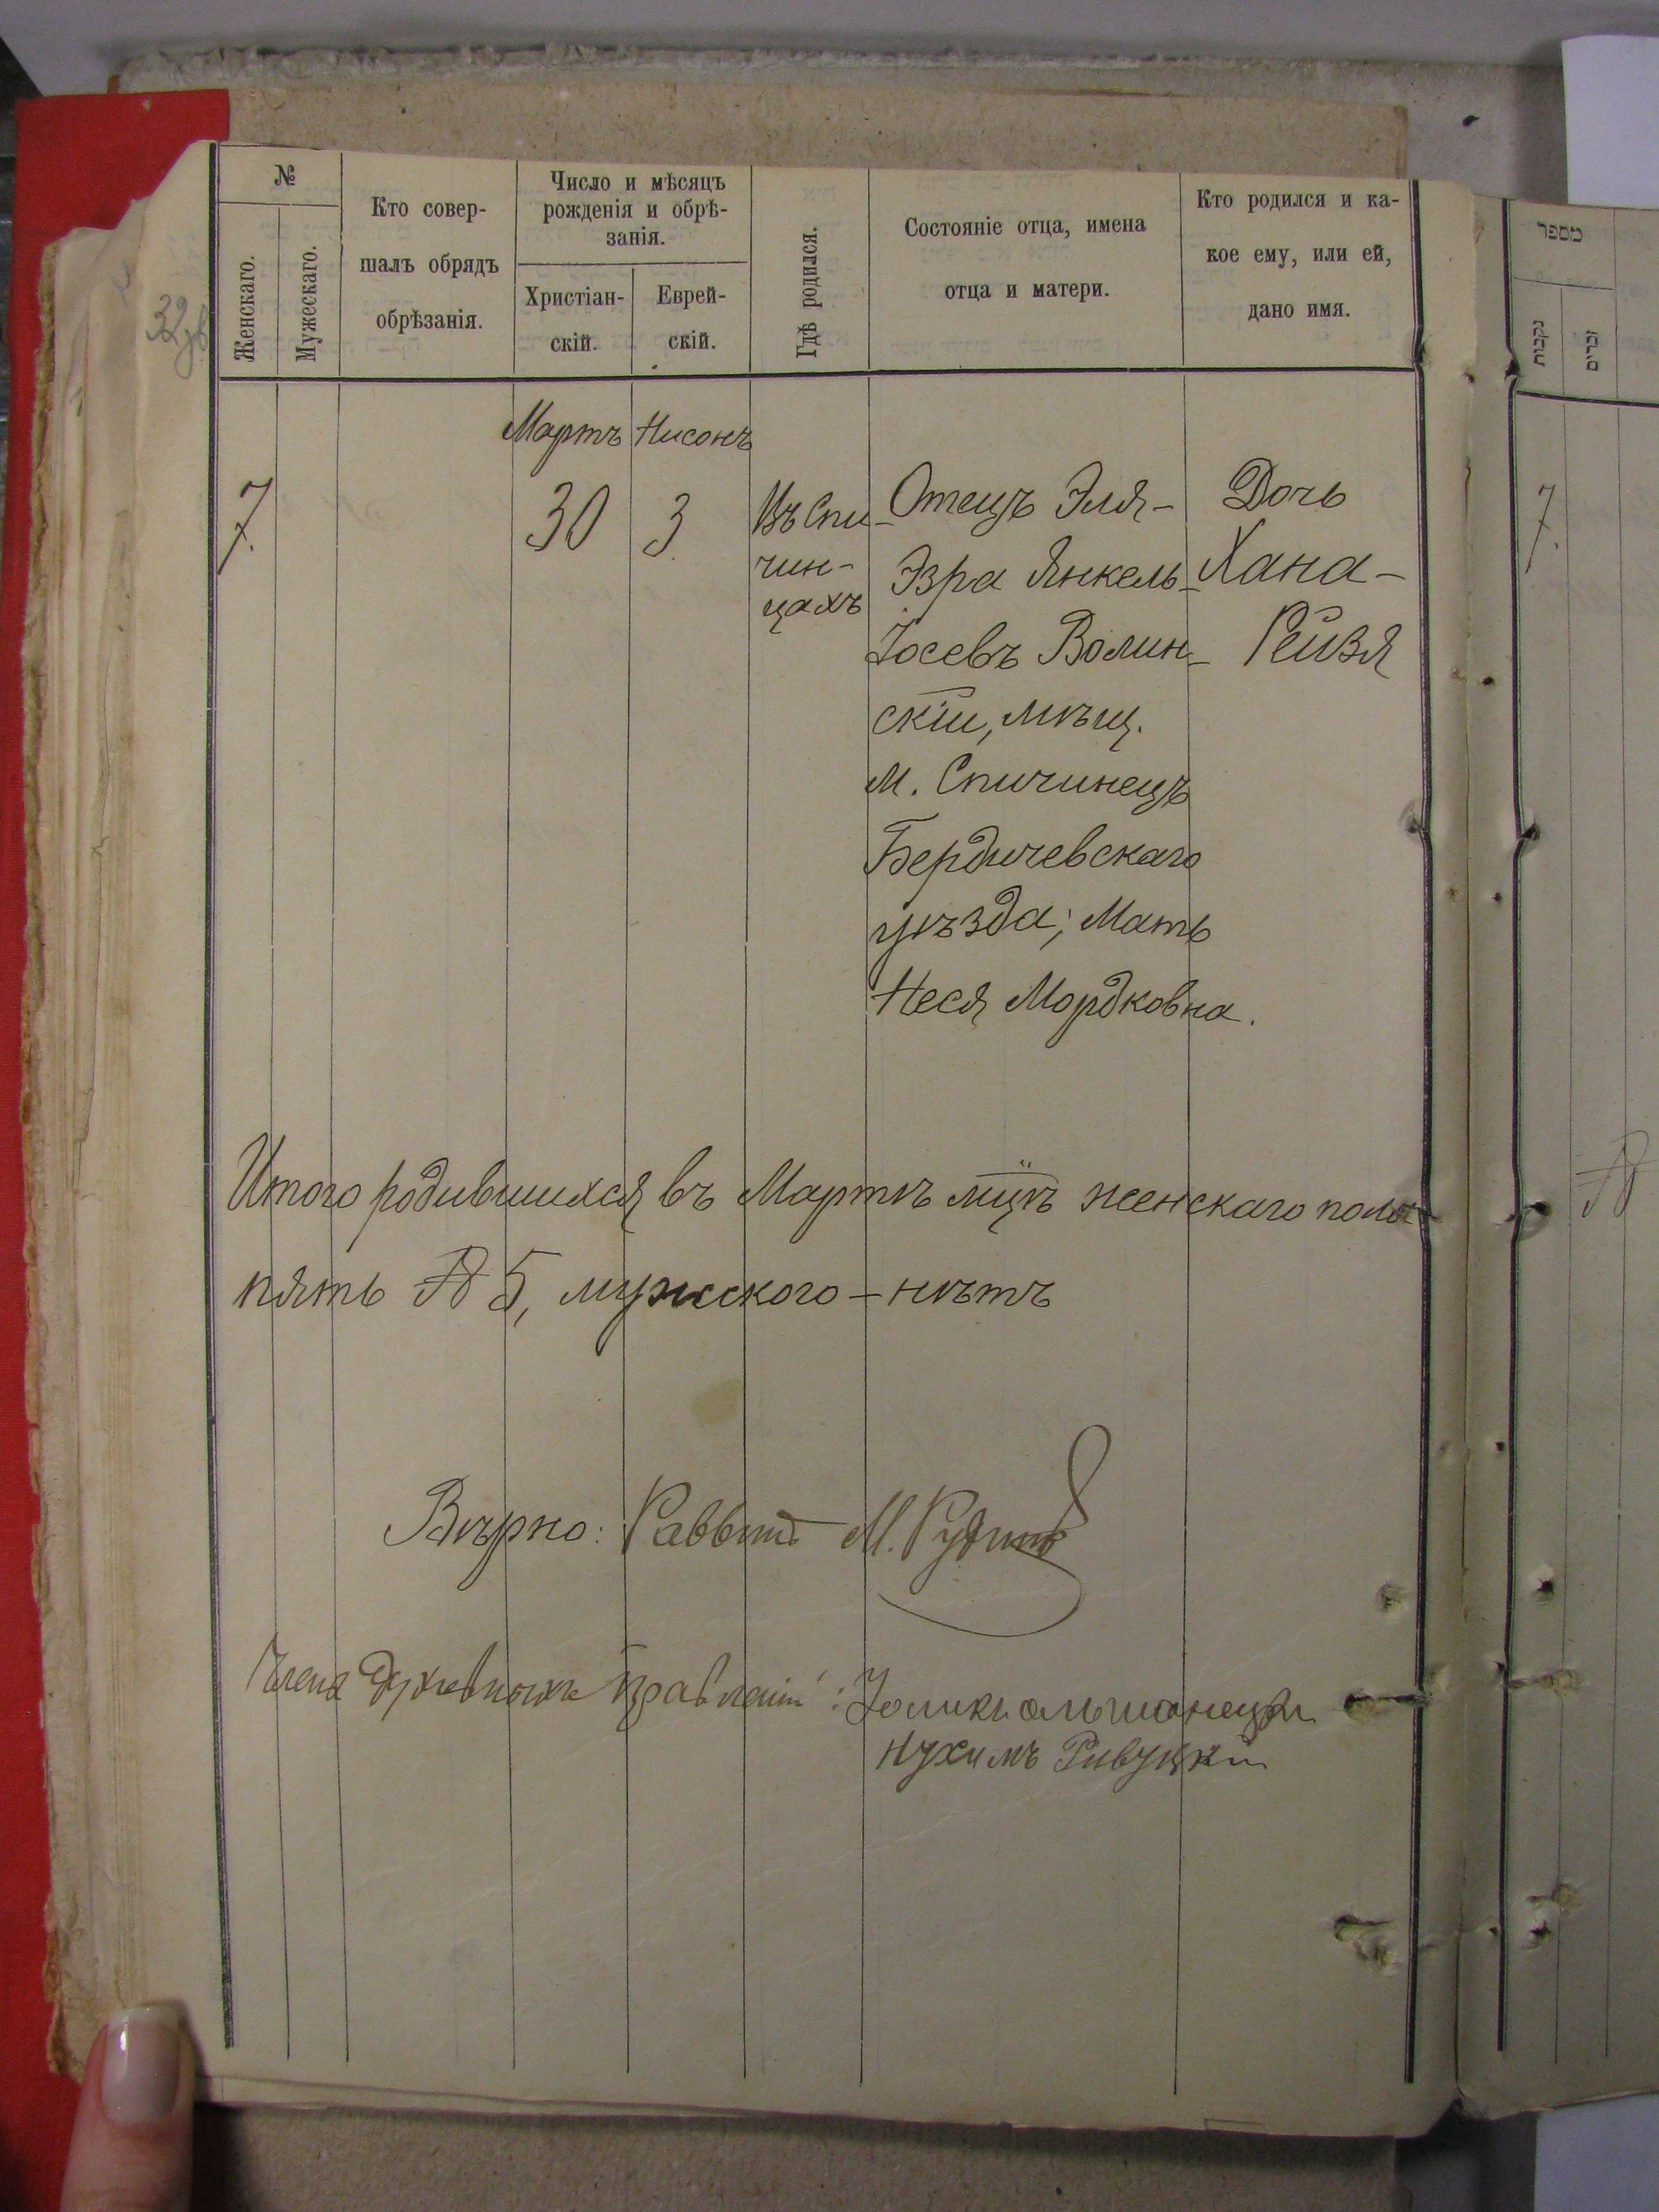 №
Женскаго.
Мужескаго.
Кто совер-
шалъ обрядъ
обрѣзанія.
Число и мѣсяцъ
рожденія и обрѣ-
занія.
Христіан-
скій.
Еврей-
скій.
Гдѣ родился.
Состояніе отца, имена
отца и матери.
Кто родился и ка-
кое ему, или ей,
дано имя.
32
Мартъ Нисонъ
7.
30
3
Въ Спи-
чин-
цахъ
Отецъ Эля-
Эзра Янкель-
Іосевъ Волин-
скій, мѣщ.
м. Спичинецъ
Бердичевскаго
уѣзда; Мать
Неся Мордковна.
Дочь
Хана-
Рейзя
Итого родившихся въ Мартѣ мцѣ женскаго пола
пять № 5, мужского - нѣтъ
Вѣрно: Раввинъ М.
Члены Духовныхъ Правленій:
Нухимъ Ривуцкій
מספר
נקבות
זכרים
7.
№